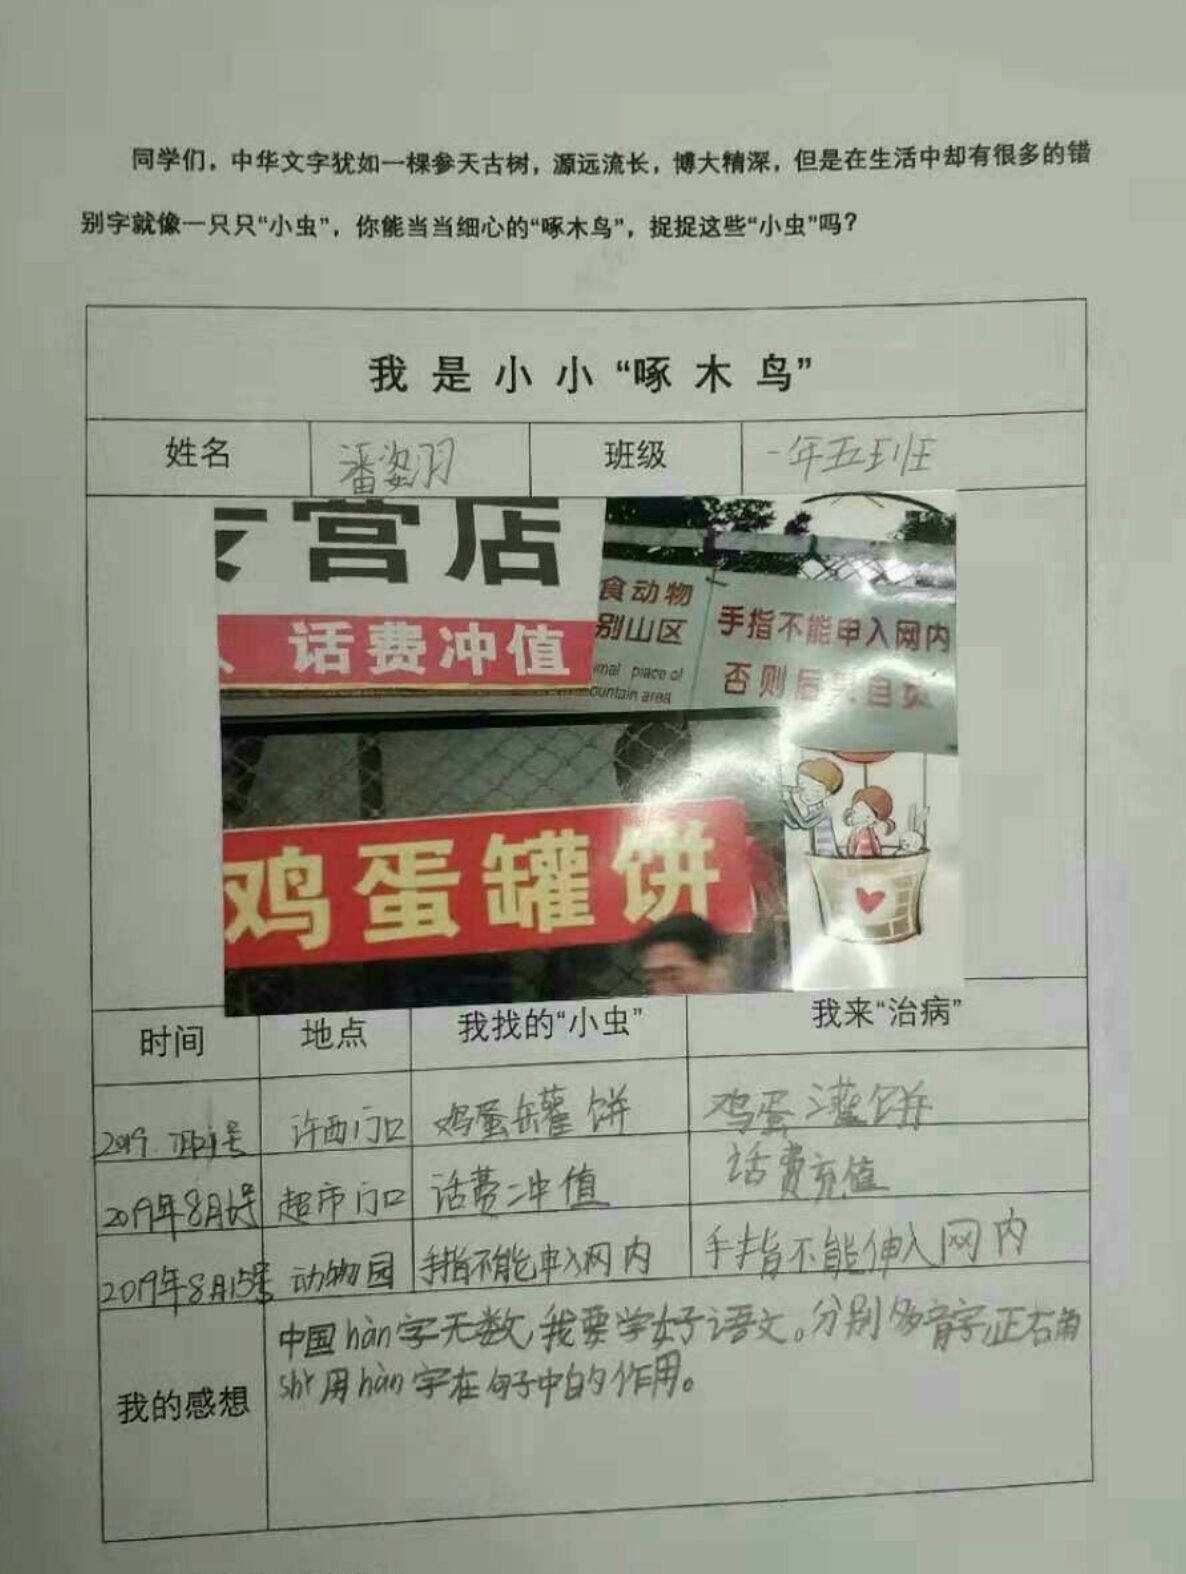 同学们，中华文字犹如一棵参天古树，源远流长，博大精深，但是在生活中却有很多的错
别字就像一只只“小虫”，你能当当细心的“啄木鸟”，捉捉这些“小虫”吗？
我是小小“啄木鸟”
姓名 潘姿羽 班级 一年五班
营店
话费冲值
食动物
别山区
imal place of
ountain area
手指不能申入网内
否则后果自负
鸡蛋罐饼
时间 地点 我找的“小虫” 我来“治病”
2019. 许西门口 鸡蛋罐饼 鸡蛋灌饼
2019年8月 号 超市门口 话费冲值 话费充值
2019年8月15号 动物园 手指不能申入网内 手指不能伸入网内
我的感想
中国hàn字无数，我要学好语文。分别多音字，正右角
shǐ用hàn字在句子中的作用。